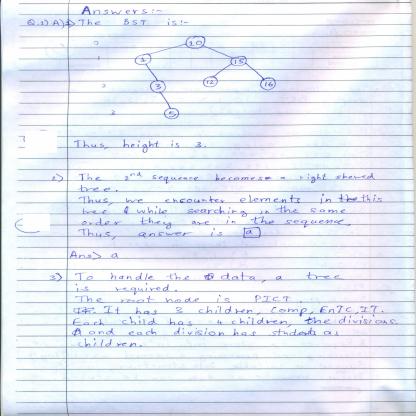 Answers:-
Q.1) A) 1) The BST is:-
0 10
1 1 15
2 3 12 16
3 5
Thus, height is 3.
2) The 2nd sequence becomes a right skewed
tree.
Thus, we encounter elements in this
tree while searching in the same
order they are in the sequence.
Thus, answer is a
Ans> a
3) To handle the data, a tree
is required.
The root node is PICT.
It has 3 children, Comp, EnTC, IT.
Each child has 4 children, the divisions
and each division has students as
children.